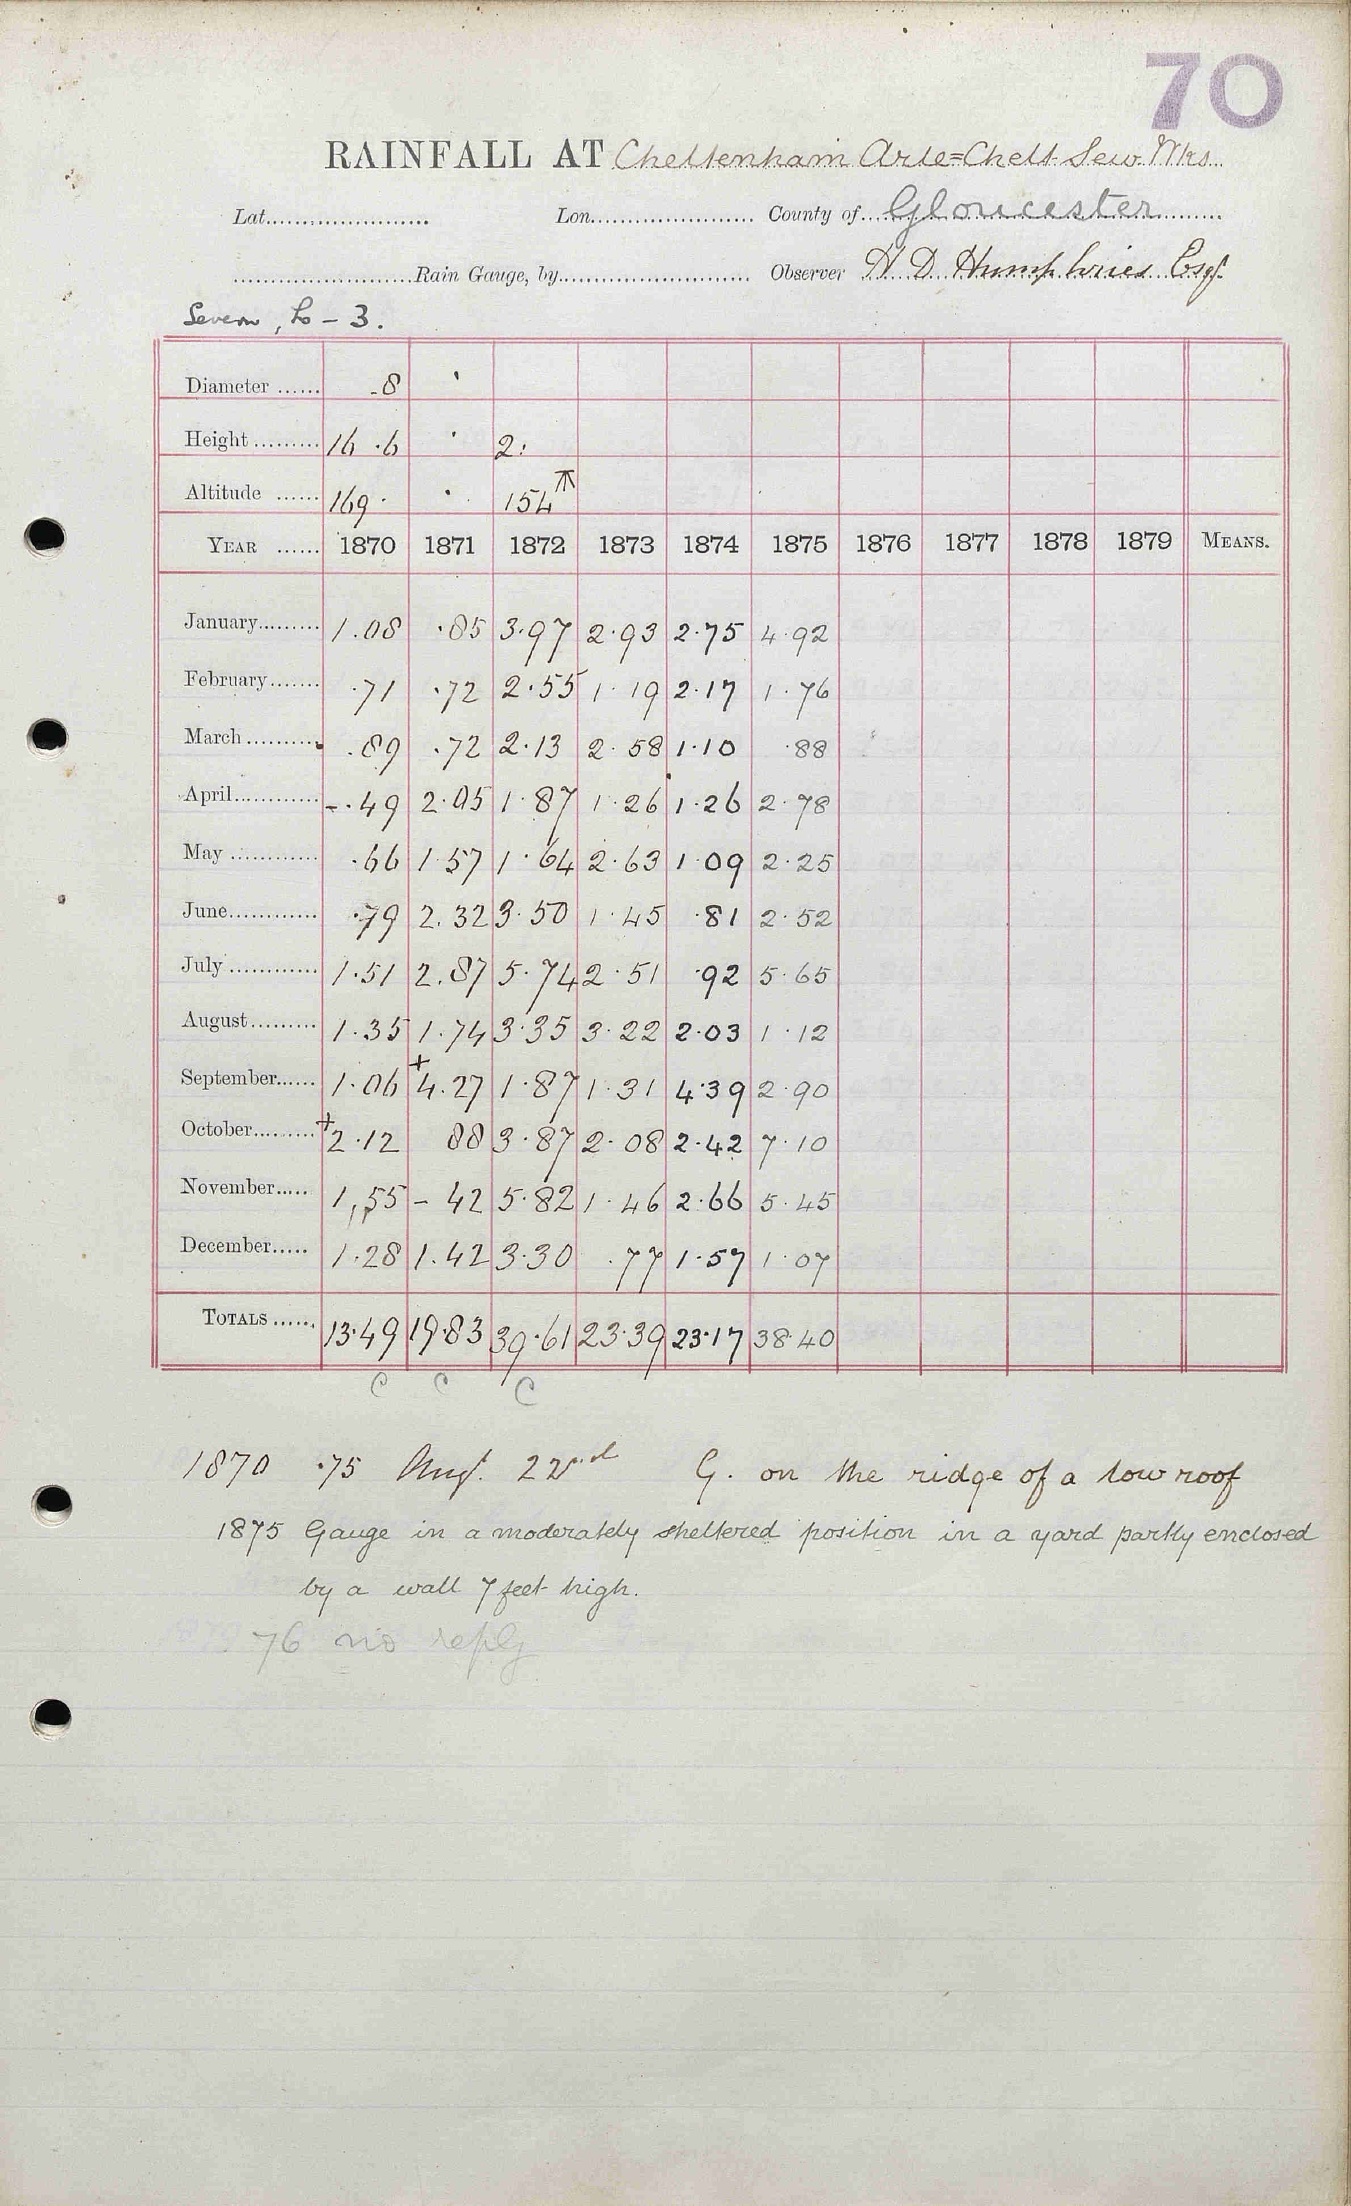 70
RAINFALL AT Cheltenham Arle = Chelt Sew Wks
Lat. Lon. County of Gloucester
Rain Gauge, by Observer H D Humphries Esqr.
Severn, L - 3.
Diameter 8 ·
Height 16 .6 · 2:
Altitude 169 · · 154
YEAR 1870 1871 1872 1873 1874 1875 1876 1877 1878 1879 MEANS.
January 1.08 .85 3.97 2.93 2.75 4.92
February .71 .72 2.55 1.19 2.17 1.76
March .89 .72 2.13 2.58 1.10 .88
April -.49 2.05 1.87 1.26 1.26 2.78
May .66 1.57 1.64 2.63 1.09 2.25
June .79 2.32 3.50 1.45 .81 2.52
July 1.51 2.87 5.74 2.51 .92 5.65
August 1.35 1.74 3.35 3.22 2.03 1.12
September 1.06 +4.27 1.87 1.31 4.39 2.90
October +2.12 88 3.87 2.08 2.42 7.10
November 1,55 - 42 5.82 1.46 2.66 5.45
December 1.28 1.42 3.30 .77 1.57 1.07
TOTALS 13.49 19.83 39.61 23.39 23.17 38.40
C C C
1870 .75 Augt. 22nd G. on the ridge of a low roof
1875 Gauge in a moderately sheltered position in a yard partly enclosed
by a wall 7 feet high.
76 no reply